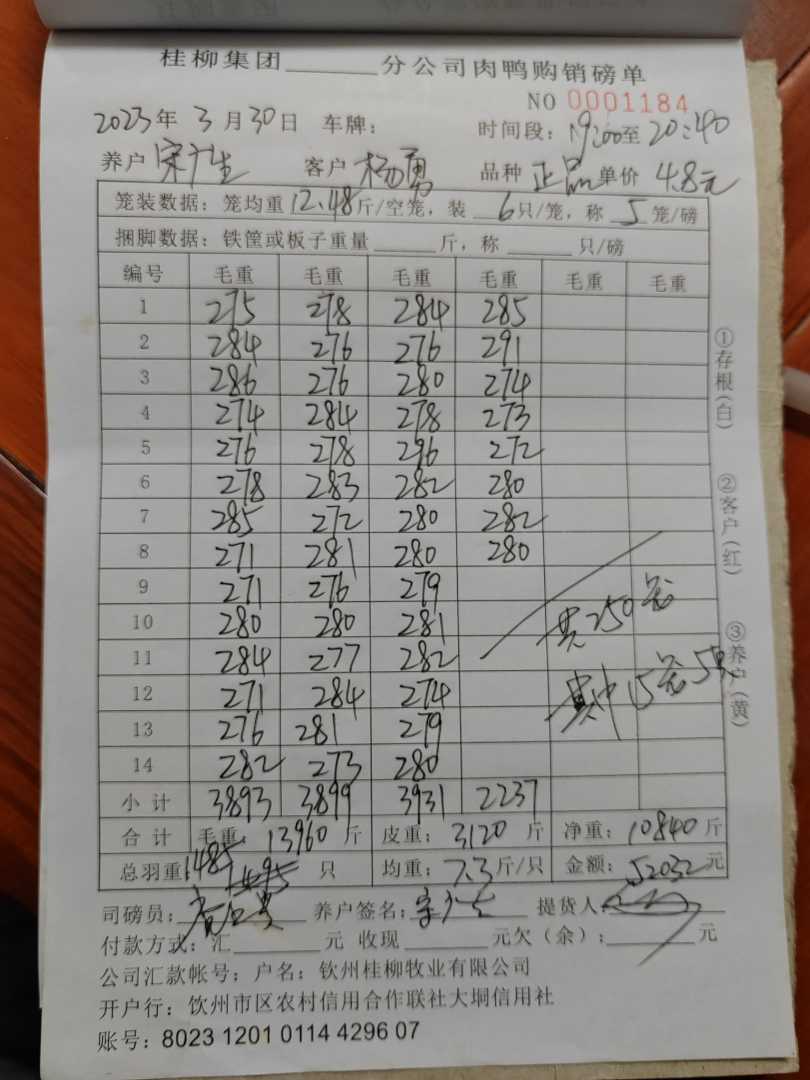 桂柳集团______分公司肉鸭购销磅单
NO 0001184
2023年 3月30日 车牌: 时间段: 19:00至20:40
养户 宋广生 客户 杨勇 品种 正品 单价 4.8元
笼装数据: 笼均重12.48斤/空笼, 装 6只/笼, 称 5 笼/磅
捆脚数据: 铁筐或板子重量______斤, 称______只/磅
编号 毛重 毛重 毛重 毛重 毛重 毛重
1 275 278 284 285
2 284 276 276 291
3 286 276 280 274
4 274 284 278 273
5 276 278 296 272
6 278 283 282 280
7 285 272 280 282
8 271 281 280 280
9 271 276 279
10 280 280 281
共250笼
11 284 277 282
12 271 284 274
其中15笼5只
13 276 281 279
14 282 273 280
小计 3893 3899 3931 2237
合计 毛重: 13960 斤 皮重: 3120 斤 净重: 10840斤
总羽重 1485 只 均重: 7.3斤/只 金额: 52032元
司磅员: 养户签名: 宋广生 提货人:
付款方式: 汇______元 收现______元欠(余): ______元
公司汇款帐号: 户名: 钦州桂柳牧业有限公司
开户行: 饮州市区农村信用合作联社大垌信用社
账号: 8023 1201 0114 4296 07
①存根(白)
②客户(红)
③养户(黄)